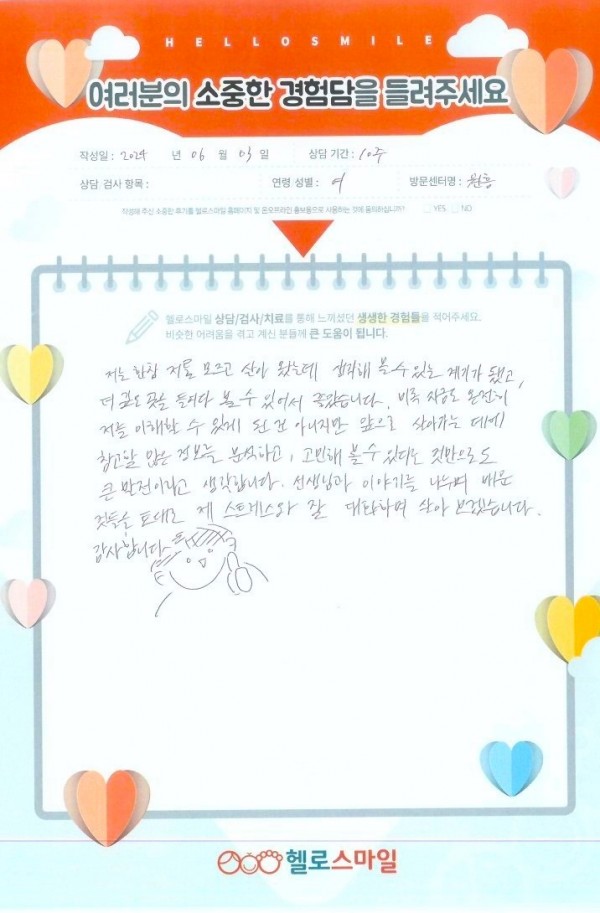 HELLOSMILE
여러분의 소중한 경험담을 들려주세요
작성일 : 2024 년 06 월 03 일 상담 기간 : 10주
상담 검사 항목 : 연령 성별 : 여 방문센터명 : 원흥
작성해 주신 소중한 후기를 헬로스마일 홈페이지 및 온오프라인 홍보용으로 사용하는 것에 동의하십니까? YES NO
헬로스마일 상담/검사/치료를 통해 느끼셨던 생생한 경험들을 적어주세요.
비슷한 어려움을 겪고 계신 분들께 큰 도움이 됩니다.
저는 한참 저를 모르고 살아 왔는데 생각해 볼 수 있는 계기가 됐고,
더 깊은 곳을 들여다 볼 수 있어서 좋았습니다. 비록 지금도 완전히
저를 이해할 수 있게 된 건 아니지만 앞으로 살아가는 데에
참고할 많은 정보를 분석하고, 고민해 볼 수 있다는 것만으로도
큰 발전이라고 생각합니다. 선생님과 이야기를 나누며 배운
것들을 토대로 제 스트레스와 잘 대화하며 살아 보겠습니다.
감사합니다
헬로스마일